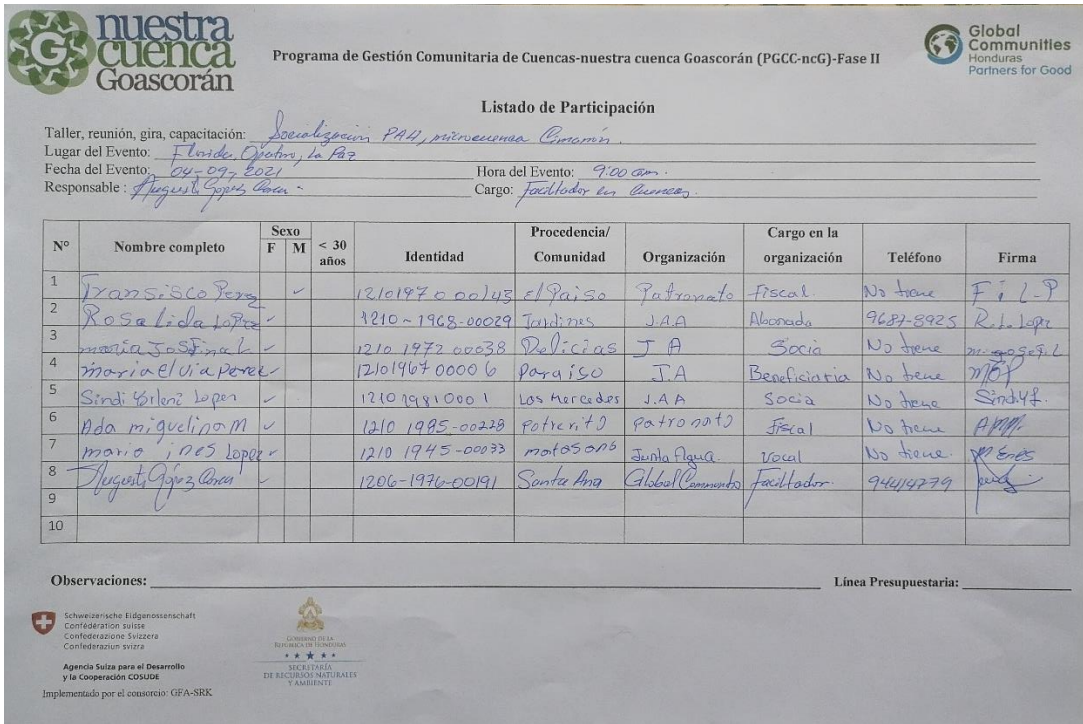 nuestra
cuenca
Goascorán
Global
Communities
Honduras
Partners for Good
Programa de Gestión Comunitaria de Cuencas-nuestra cuenca Goascorán (PGCC-ncG)-Fase II
Listado de Participación
Taller, reunión, gira, capacitación: Socialización PAH, microcuenca Cimarrón.
Lugar del Evento: Florida, Opatoro, La Paz
Fecha del Evento: 04-09-2021 Hora del Evento: 9:00 am.
Responsable : Cargo: Facilitador en Cuencas.
N° Nombre completo Sexo F M < 30 años Identidad Procedencia/ Comunidad Organización Cargo en la organización Teléfono Firma
1 Fransisco Perez ✓ 1210 1970 00143 El Paiso Patronato Fiscal. No tiene F i L-P
2 Rosa Lida Lopez ✓ 1210-1968-00029 Jardines J.A.A Abonada 9687-8925 R.L. Lopez
3 maria Josfina L ✓ 1210 1972 00038 Delicias J A Socia No tiene
4 maria Elvia Perez ✓ 1210 1967 0000 6 Paraiso J.A Beneficiaria No tiene MEP
5 Sindi Lopez ✓ 1210 1981 000 1 Las Mercedes J.A.A Socia No tiene
6 Ada miguelina M ✓ 1210 1985-00228 Potrerito patronato Fiscal No tiene
7 mario ines Lopez ✓ 1210 1945-00033 matasano Junta Agua. Vocal No tiene.
8 ✓ 1206-1976-00191 Santa Ana Global Facilitador. 94414779
9
10
Observaciones: Línea Presupuestaria:
Schweizerische Eidgenossenschaft
Confédération suisse
Confederazione Svizzera
Confederaziun svizra
Agencia Suiza para el Desarrollo
y la Cooperación COSUDE
Implementado por el consorcio: GFA-SRK
GOBIERNO DE LA
REPÚBLICA DE HONDURAS
SECRETARÍA
DE RECURSOS NATURALES
Y AMBIENTE